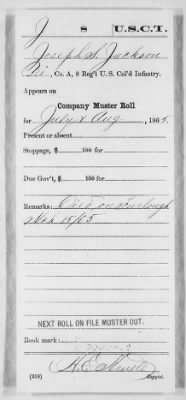 J 8 U.S.C.T.
Joseph S. Jackson
Co. A, 8 Reg't U. S. Col'd Infantry.
Appears on
Company Muster Roll
for July & Aug, 186
Present or absent
Stoppage, $ 100 for
Due Gov't, $ 100 for
Remarks: Died on Furlough
Mch 15/65
NEXT ROLL ON FILE MUSTER OUT.
Book mark:
(358) Copyist.